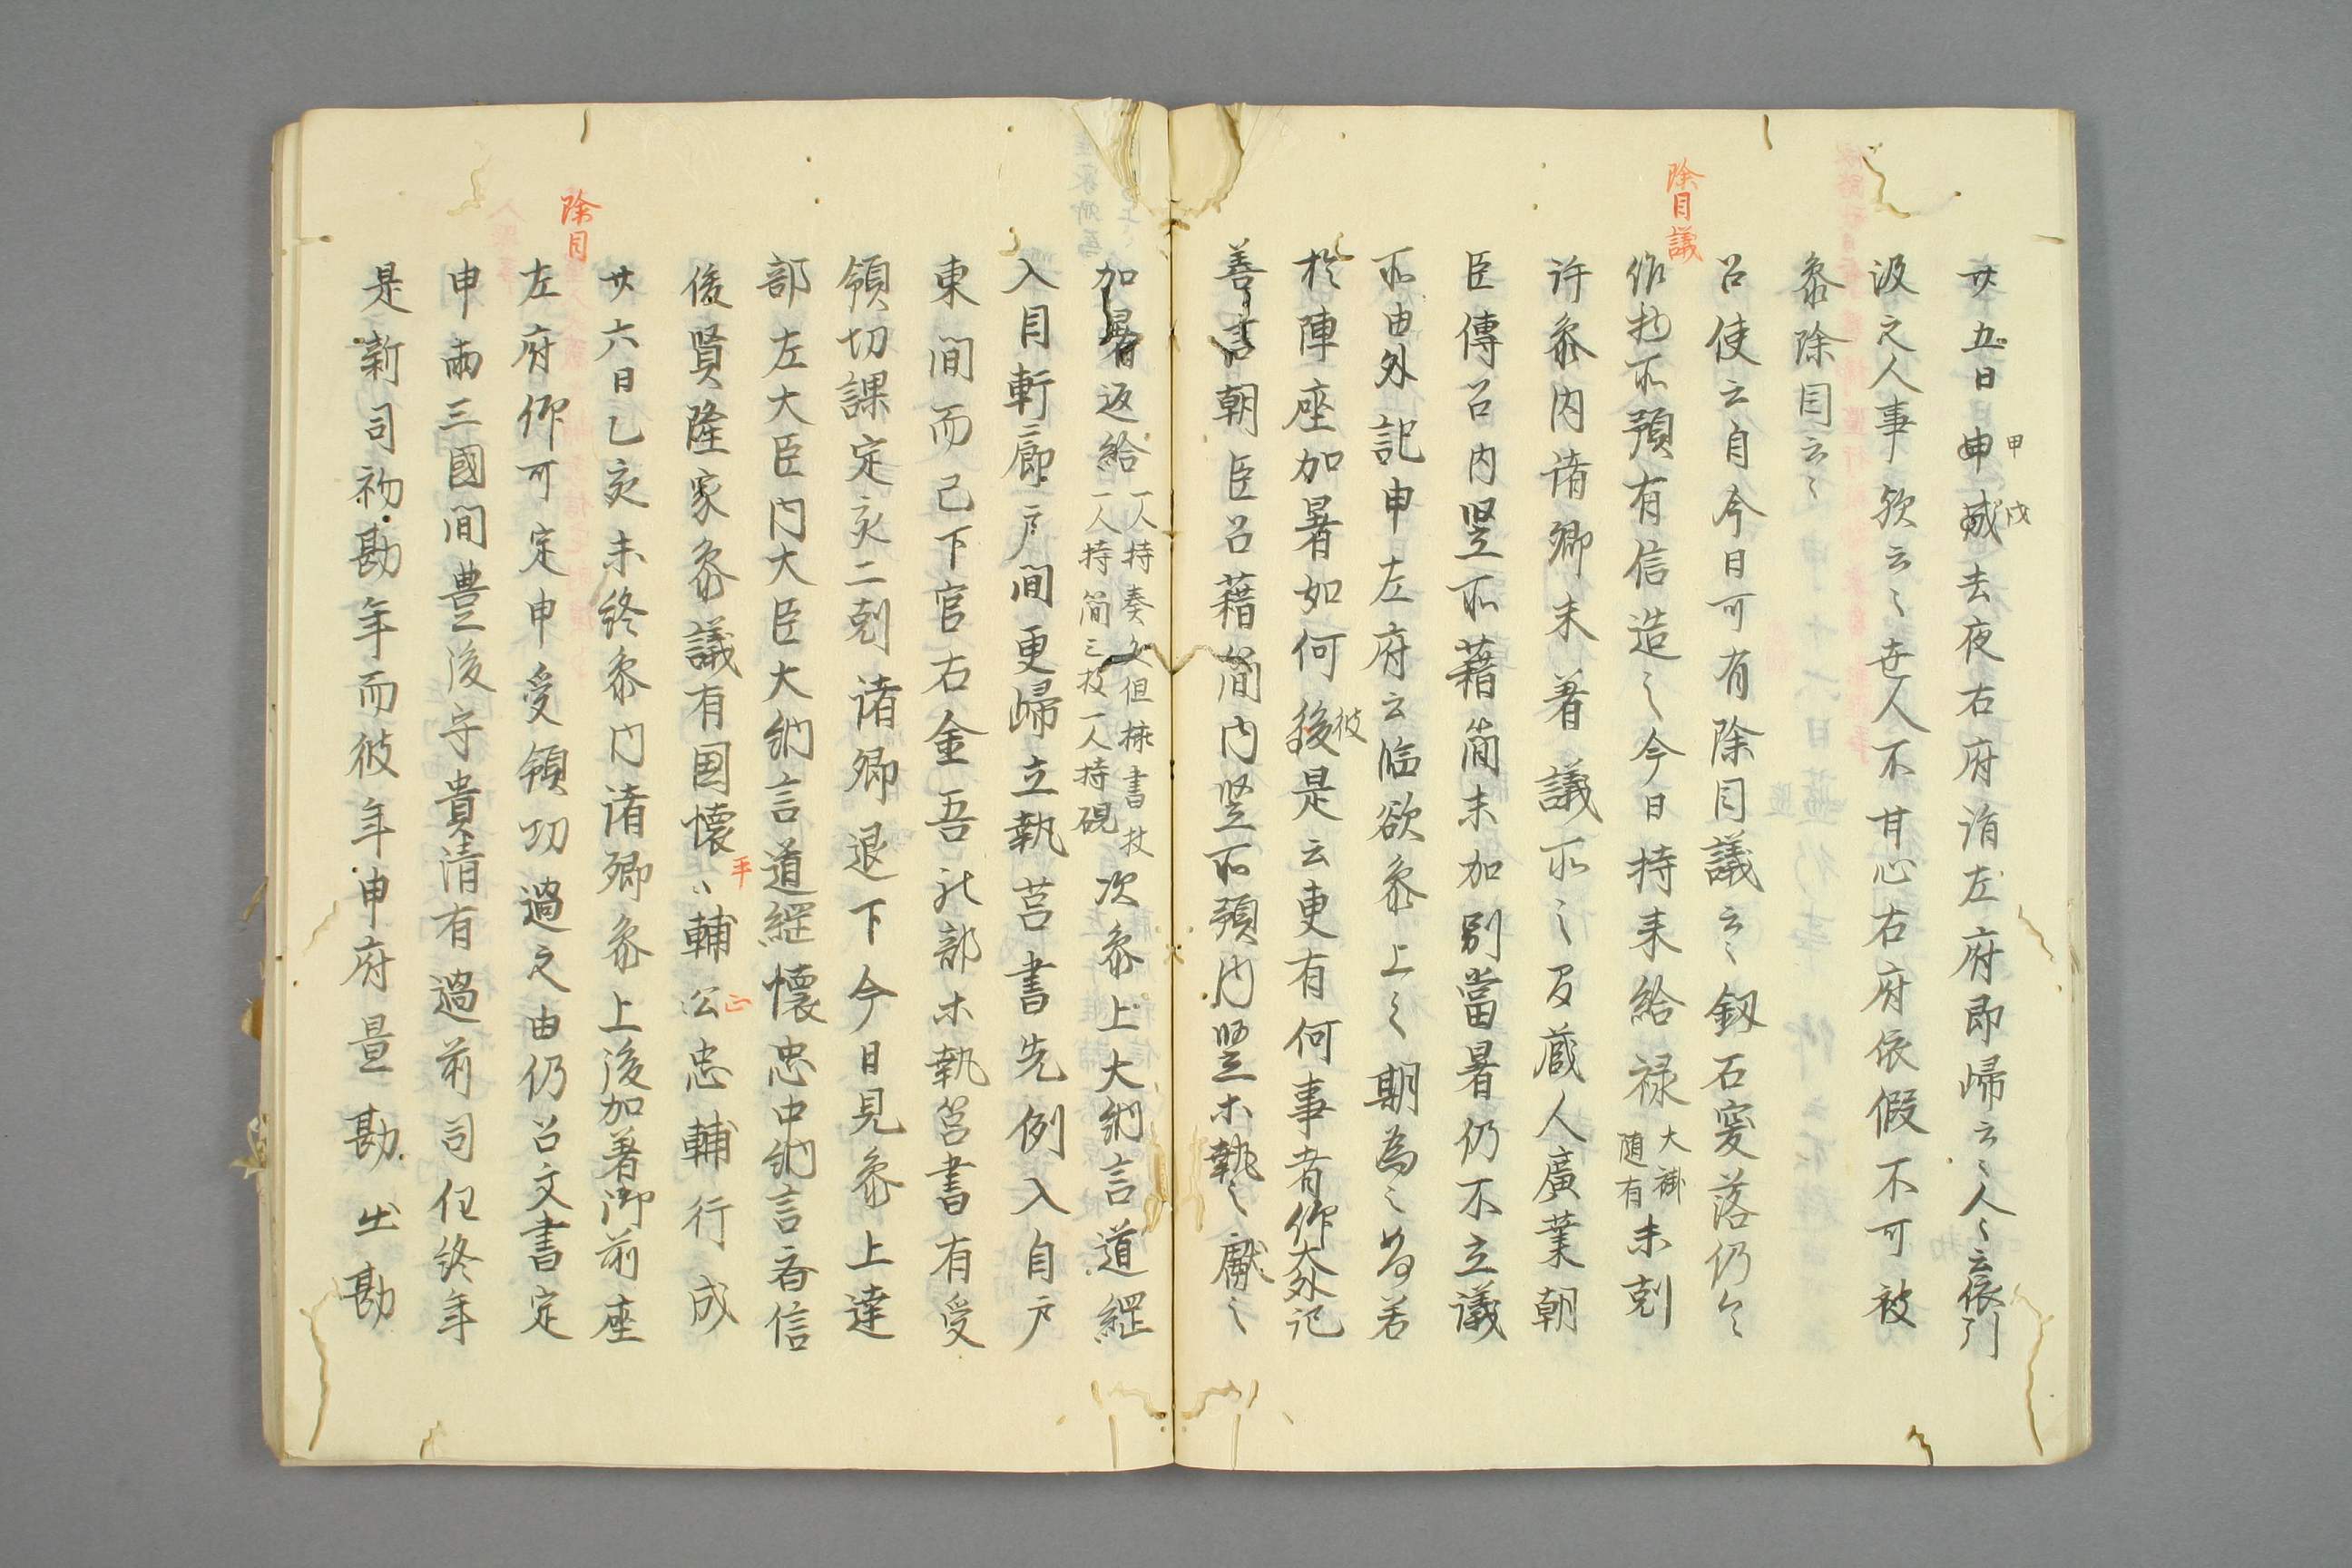 廿五日申威去夜右府詣左府即歸云〻人〻云依引
甲
戊
汲之人事欤云〻世人不甘心右府依假不可被
参除目云〻
除目議
召使云自今日可有除目議云〻釼石窔落仍令
作扵所預有信造之今日持来給禄
大褂
随有
未剋
許参内諸卿未着議所之及蔵人廣業朝
臣傳召内竪所藉簡未加別當暑仍不立議
所由外記申左府云臨欲参上之期為之如若
於陣座加暑如何後是云更有何事者仰大外記
彼
善言朝臣召藉简内竪所預内竪木執之獻之
加暑返給
一人持奏文但挿書杖
一人持简三枚一人持硯
次参上大納言道綱
入目軒廊戸間更歸立執莒書先例入自戸
東間而已下官右金吾礼部木執筥書有受
領切課定亥二剋諸卿退下今日見参上達
部左大臣内大臣大納言道綱懐忠中納言斉信
俊賢隆家参議有国懐〻輔公忠輔行成
平
正
除目
廿六日乙亥未終参内諸卿参上後加著御前座
左府仰可定申受領功過之由仍召文書定
申両三國間豊後守貴清有過前司任終年
是新司初勘年而彼年申府量勘出勘